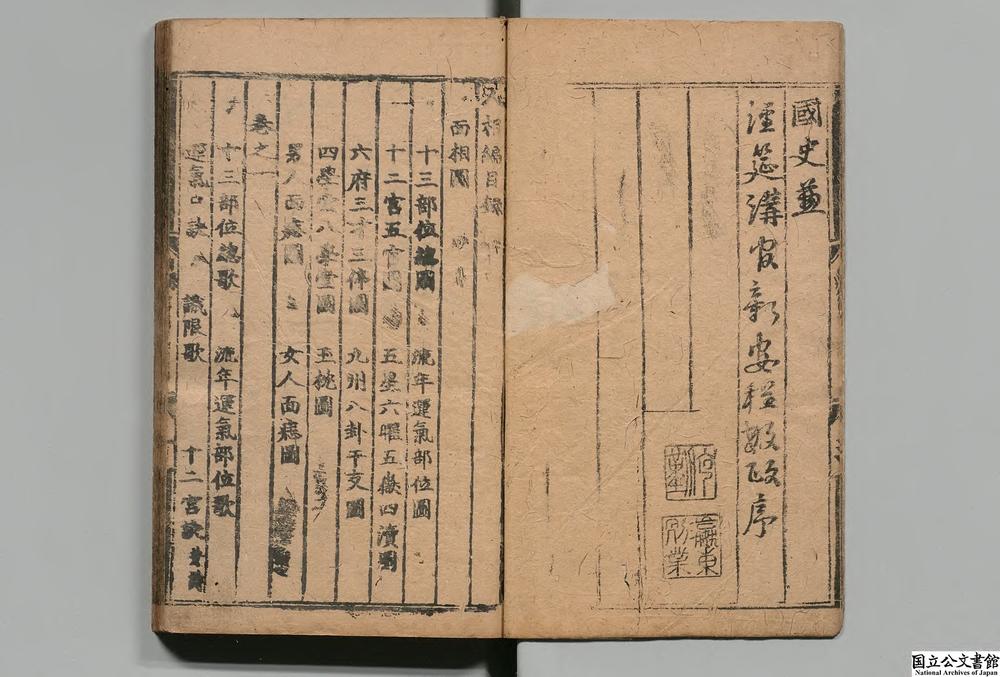 國史兼
經筵講官新安程敏政序
人相編目錄
面相圖
十三部位總圖 流年運氣部位圖
十二宮五官圖 五星六曜五嶽四瀆圖
六府三才三停圖 九州八卦干支圖
四學堂八學堂圖 玉枕圖
男人面痣圖 女人面痣圖
卷之一
十三部位總歌 流年運氣部位歌
運氣口訣 識限歌 十二宮訣
国立公文書館
National Archives of Japan